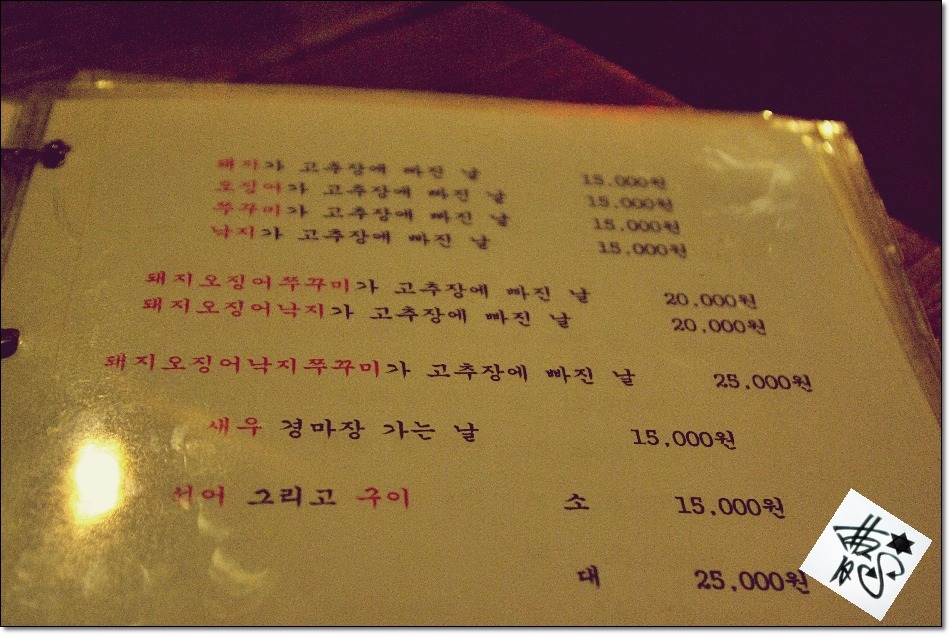 돼지가 고추장에 빠진 날 15,000원
오징어가 고추장에 빠진 날 15,000원
쭈꾸미가 고추장에 빠진 날 15,000원
낙지가 고추장에 빠진 날 15,000원
돼지오징어쭈꾸미가 고추장에 빠진 날 20,000원
돼지오징어낙지가 고추장에 빠진 날 20,000원
돼지오징어낙지쭈꾸미가 고추장에 빠진 날 25,000원
새우 경마장 가는 날 15,000원
그리고 구이 소 15,000원
대 25,000원